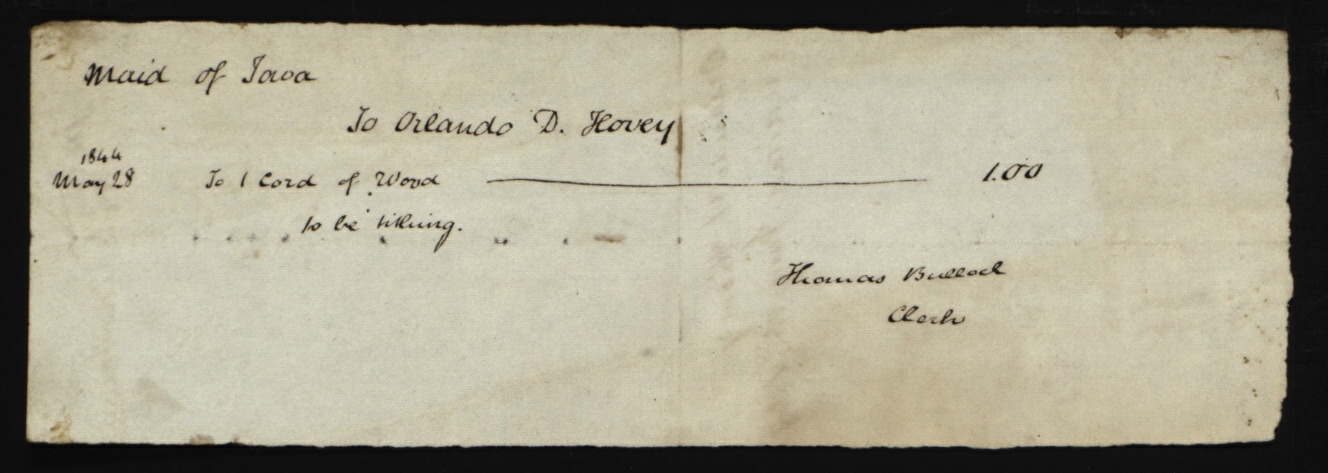 Maid of Iowa
To Orlando D. Hovey
1844
May 28 To 1 Cord of Wood 1.00
to be tithing.
Thomas Bullock
Clerk